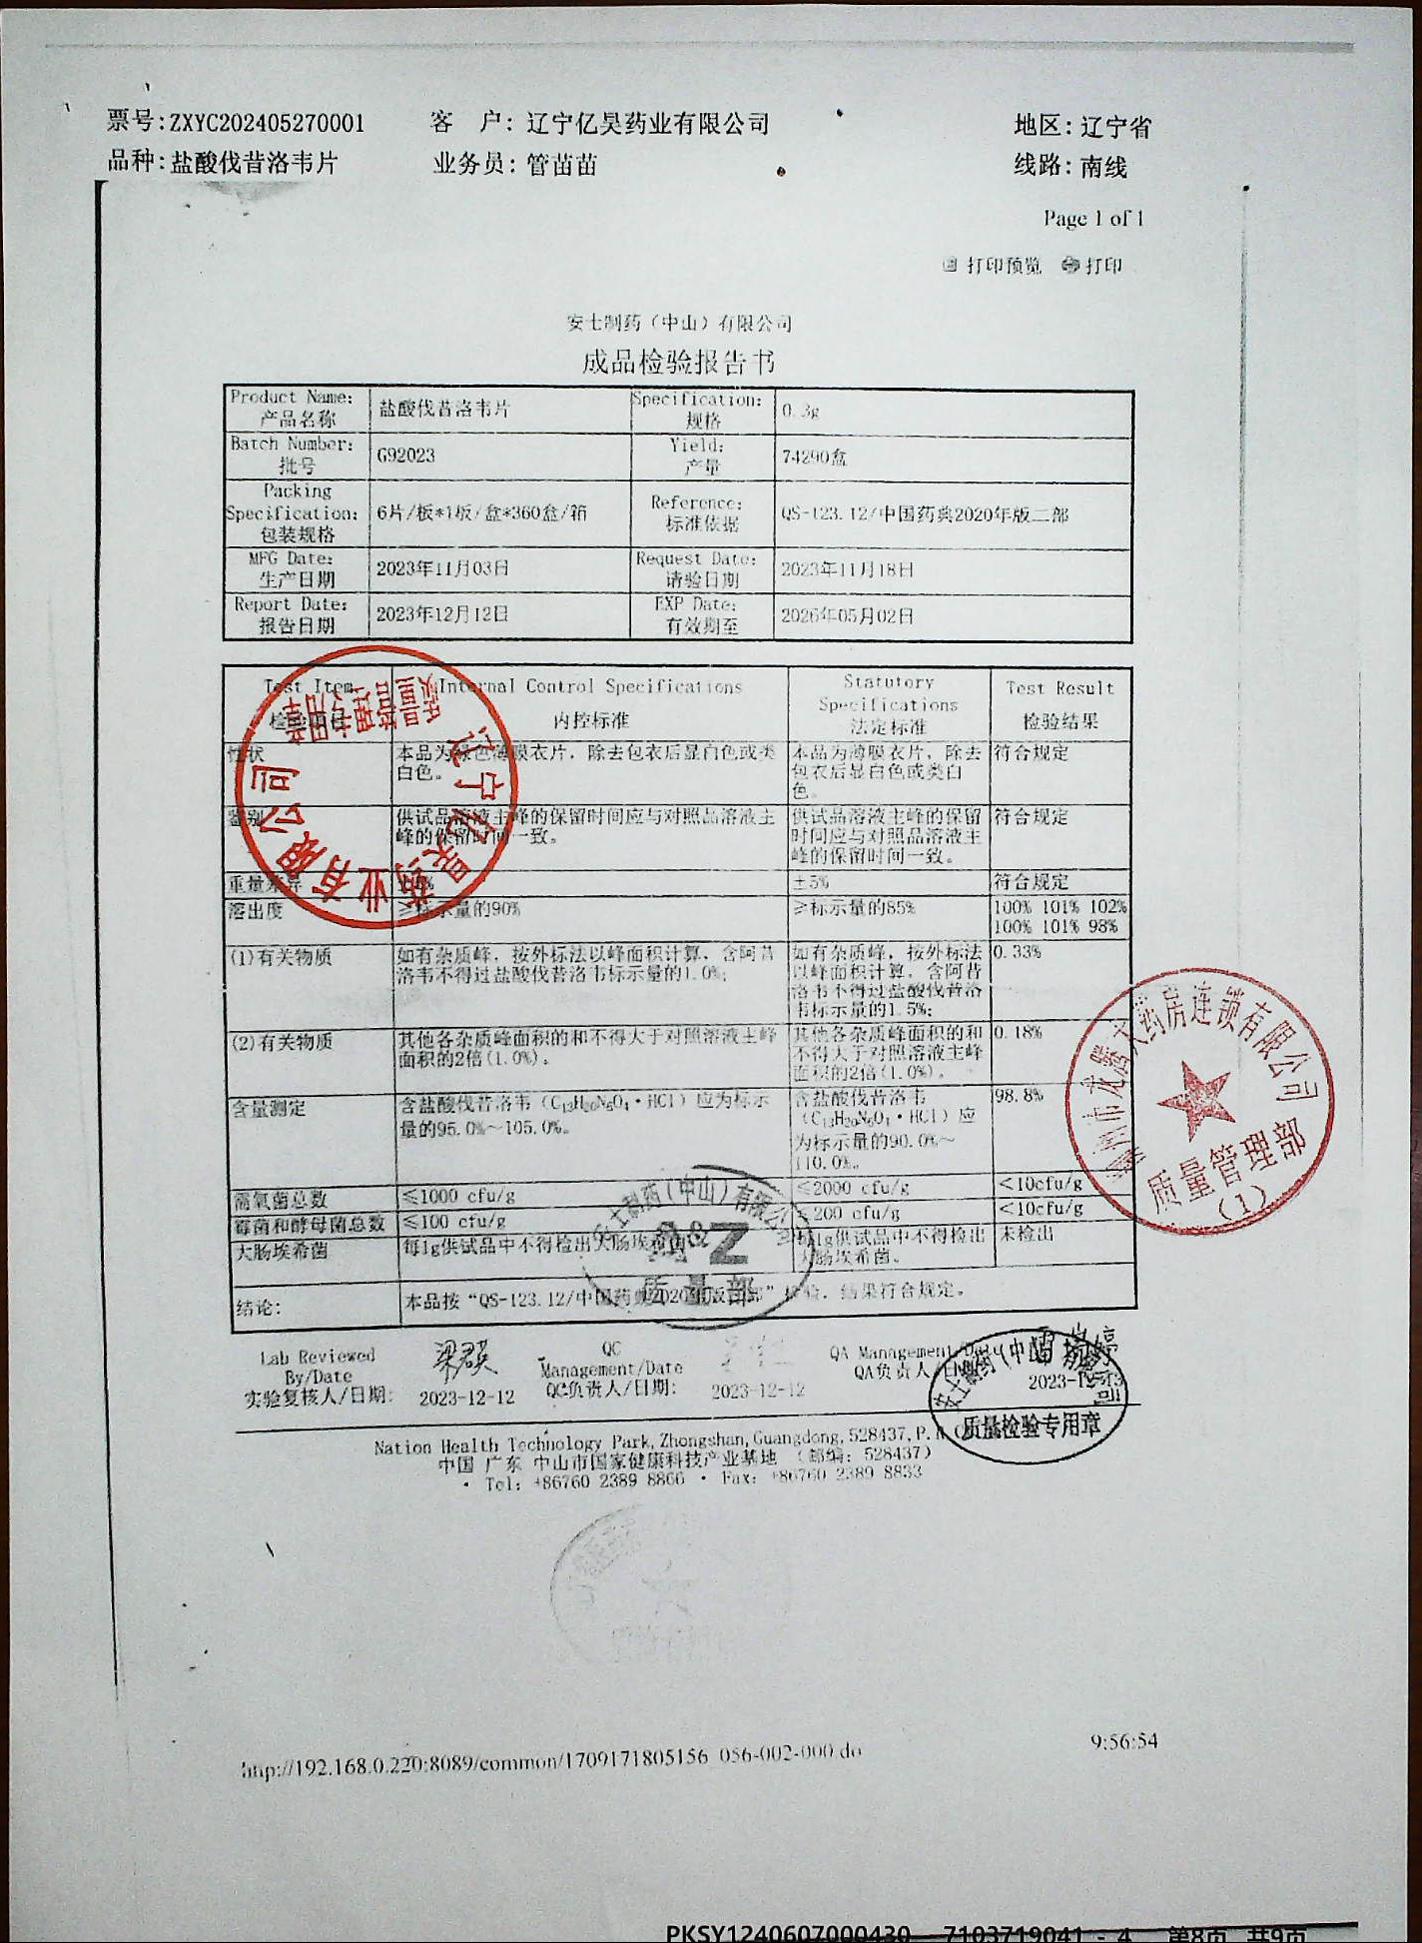 票号:ZXYC202405270001 客 户: 辽宁亿昊药业有限公司 地区: 辽宁省
品种:盐酸伐昔洛韦片 业务员: 管苗苗 线路: 南线
Page 1 of 1
打印预览 打印
安士制药（中山）有限公司
成品检验报告书
Product Name: 产品名称 盐酸伐昔洛韦片 Specification: 规格 0.3g
Batch Number: 批号 G92023 Yield: 产量 74290盒
Packing Specification: 包装规格 6片/板*1板/盒*360盒/箱 Reference: 标准依据 QS-123.12/中国药典2020年版二部
MFG Date: 生产日期 2023年11月03日 Request Date: 请验日期 2023年11月18日
Report Date: 报告日期 2023年12月12日 EXP Date: 有效期至 2026年05月02日
Test Item Internal Control Specifications Statutory Specifications Test Result
内控标准 法定标准 检验结果
性状 本品为绿色薄膜衣片，除去包衣后显白色或类白色。 本品为薄膜衣片，除去包衣后显白色或类白色。 符合规定
鉴别 供试品溶液主峰的保留时间应与对照品溶液主峰的保留时间一致。 供试品溶液主峰的保留时间应与对照品溶液主峰的保留时间一致。 符合规定
重量差异 ±5% 符合规定
溶出度 ≥标示量的90% ≥标示量的85% 100% 101% 102%
100% 101% 98%
(1)有关物质 如有杂质峰，按外标法以峰面积计算，含阿昔洛韦不得过盐酸伐昔洛韦标示量的1.0%; 如有杂质峰，按外标法以峰面积计算，含阿昔洛韦不得过盐酸伐昔洛韦标示量的1.5%; 0.33%
(2)有关物质 其他各杂质峰面积的和不得大于对照溶液主峰面积的2倍(1.0%)。 其他各杂质峰面积的和不得大于对照溶液主峰面积的2倍(1.0%)。 0.18%
含量测定 含盐酸伐昔洛韦（C₁₃H₂₀N₆O₄·HCl）应为标示量的95.0%～105.0%。 含盐酸伐昔洛韦（C₁₃H₂₀N₆O₄·HCl）应为标示量的90.0%～110.0%。 98.8%
需氧菌总数 ≤1000 cfu/g ≤2000 cfu/g <10cfu/g
霉菌和酵母菌总数 ≤100 cfu/g ≤200 cfu/g <10cfu/g
大肠埃希菌 每1g供试品中不得检出大肠埃希菌 每1g供试品中不得检出大肠埃希菌。 未检出
结论: 本品按“QS-123.12/中国药典2020年版二部”检验，结果符合规定。
Lab Reviewed By/Date 梁群英 QC Management/Date QA Management/Date
实验复核人/日期: 2023-12-12 QC负责人/日期: 2023-12-12 QA负责人/日期
辽宁亿昊药业有限公司
质量管理专用章
大药房连锁有限公司
质量管理部
(1)
安士制药(中山)有限公司
A&Z
质量部
安士制药(中山)有限公司
质量检验专用章
Nation Health Technology Park, Zhongshan, Guangdong, 528437, P.R.
中国 广东 中山市国家健康科技产业基地 （邮编: 528437）
· Tel: +86760 2389 8866 · Fax: +86760 2389 8833
http://192.168.0.220:8089/common/1709171805156 056-002-000.do 9:56:54
PKSY1240607000430 7103719041 - 4 第8页 共9页